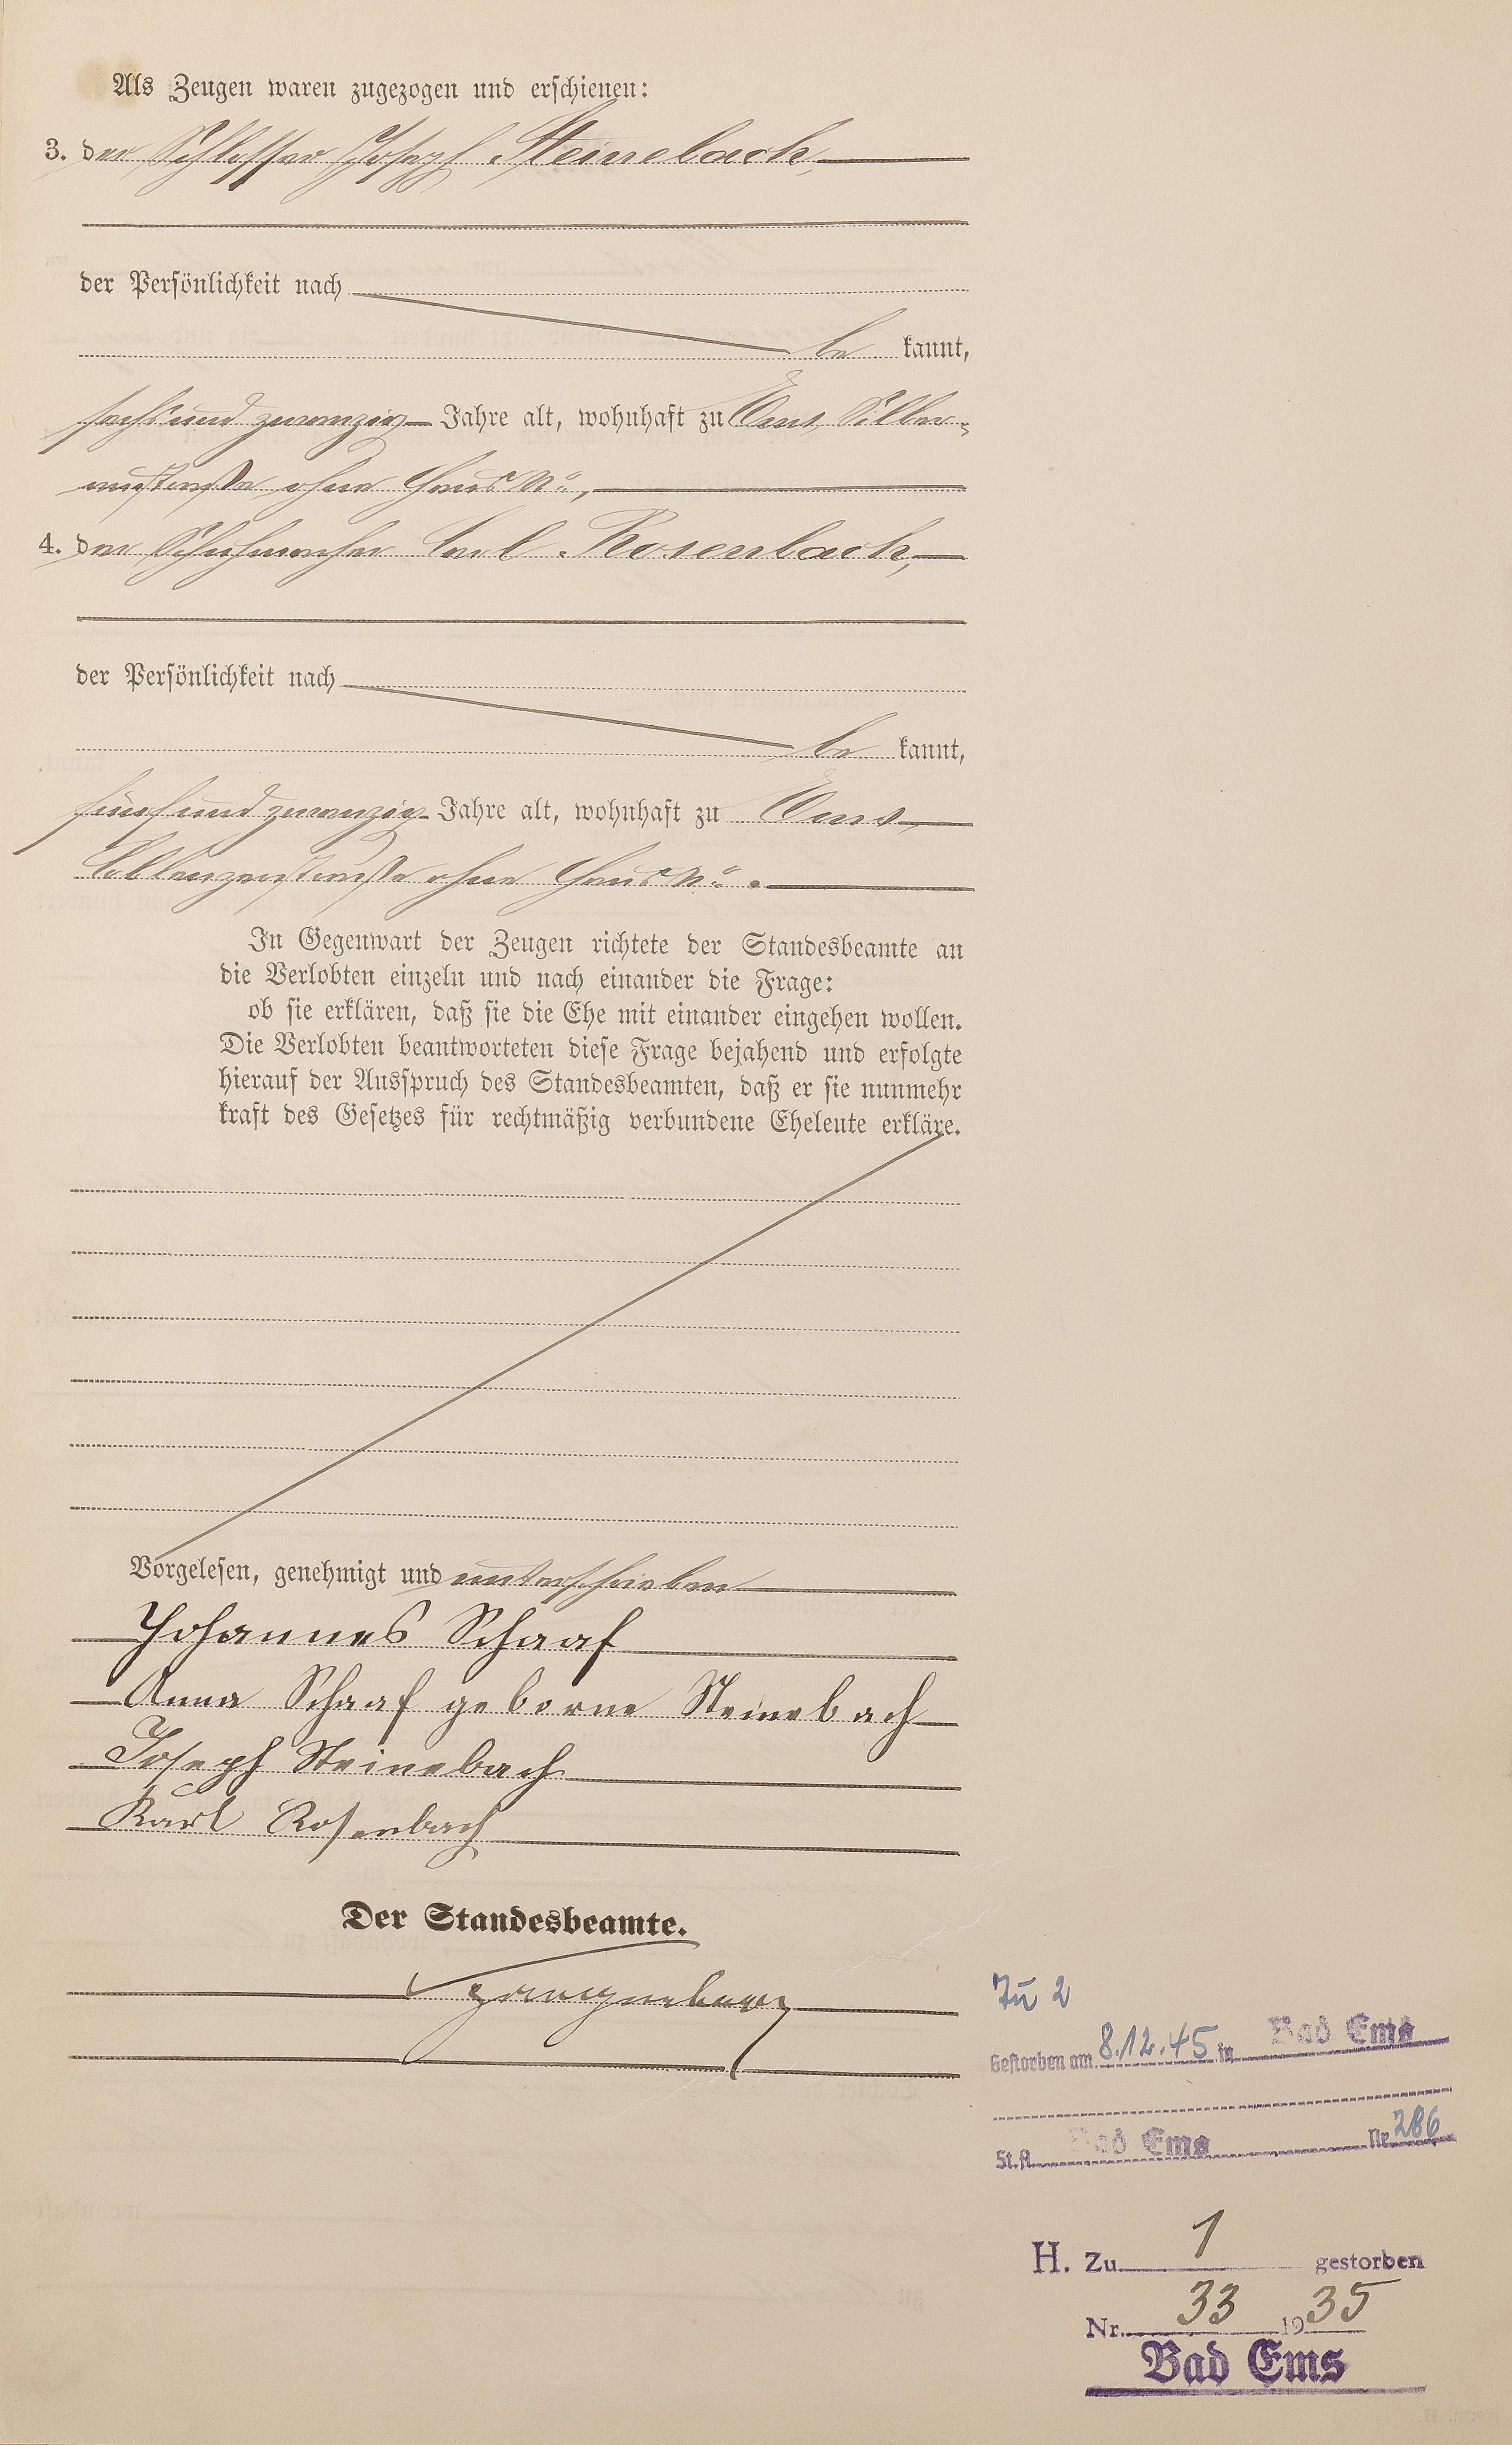 Als Zeugen waren zugezogen und erschienen:
3. der Schlosser Joseph Steinebach,
der Persönlichkeit nach
be kannt,
sechsundzwanzig Jahre alt, wohnhaft zu Ems, Silber-
austraße ohne Haus No,
4. der Schuhmacher Carl Rosenbach,
der Persönlichkeit nach
be kannt,
fünfundzwanzig Jahre alt, wohnhaft zu Ems,
Coblenzerstraße ohne Haus No.
In Gegenwart der Zeugen richtete der Standesbeamte an
die Verlobten einzeln und nach einander die Frage:
ob sie erklären, daß sie die Ehe mit einander eingehen wollen.
Die Verlobten beantworteten diese Frage bejahend und erfolgte
hierauf der Ausspruch des Standesbeamten, daß er sie nunmehr
kraft des Gesetzes für rechtmäßig verbundene Eheleute erkläre.
Vorgelesen, genehmigt und unterschrieben
Johannes Schaaf
Anna Schaaf geborne Steinebach
Joseph Steinebach
Karl Rosenbach
Der Standesbeamte.
Zu 2
Gestorben am 8.12.45 in Bad Ems
St.A. Bad Ems Nr. 286
H. Zu 1 gestorben
Nr. 33 1935
Bad Ems